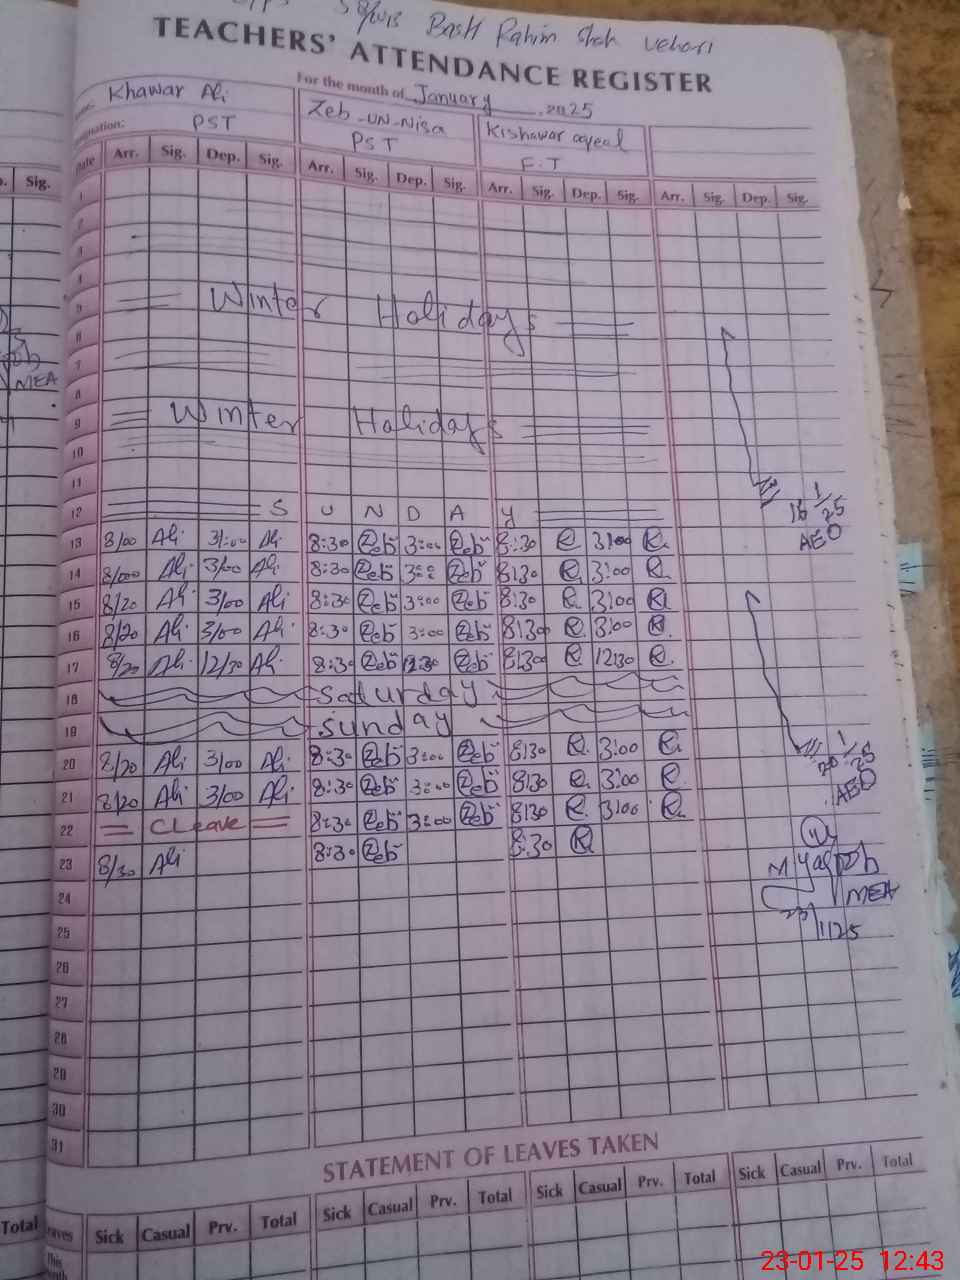 58/2015 Basti Rahim Shah Vehari
TEACHERS' ATTENDANCE REGISTER
For the month of January 2025
Khawar Ali Zeb-UN-Nisa Kishawar
PST PST F.T
Date Arr. Sig. Dep. Sig. Arr. Sig. Dep. Sig. Arr. Sig. Dep. Sig. Arr. Sig. Dep. Sig.
Sig.
1
2
3
4
5 Winter Holidays
6
7
MEA
8
9 Winter Holidays
10
11
12 S U N D A Y
16/1/25
AEO
13 8/00 Ali 3/:00 Ali 8:30 Zeb 3:00 Zeb 8:30 R 3:00 R
14 8/000 Ali 3/00 Ali 8:30 Zeb 3:00 Zeb 8:30 R 3:00 R
15 8/20 Ali 3/00 Ali 8:30 Zeb 3:00 Zeb 8:30 R 3:00 R
16 8/20 Ali 3/00 Ali 8:30 Zeb 3:00 Zeb 8:30 R 3:00 R
17 8/20 Ali 12/30 Ali 8:30 Zeb 12:30 Zeb 8:30 R 12:30 R
18 Saturday
19 Sunday
20 8/20 Ali 3/00 Ali 8:30 Zeb 3:00 Zeb 8:30 R 3:00 R
20/1/25
AEO
21 8/20 Ali 3/00 Ali 8:30 Zeb 3:00 Zeb 8:30 R 3:00 R
22 C Leave 8:30 Zeb 3:00 Zeb 8:30 R 3:00 R
23 8/30 Ali 8:30 Zeb 8:30 R
MEA
23/1/25
24
25
26
27
28
29
30
31
STATEMENT OF LEAVES TAKEN
Total Leaves Sick Casual Prv. Total Sick Casual Prv. Total Sick Casual Prv. Total Sick Casual Prv. Total
This
23-01-25 12:43